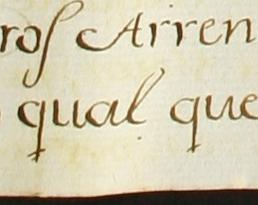 ros Arren
qual que